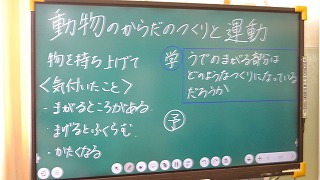 動物のからだのつくりと運動
物を持ち上げて
<気付いたこと>
・まがるところがある
・まげるとふくらむ
・かたくなる
学
うでのまがる部分は
どのようなつくりになっている
だろうか
予